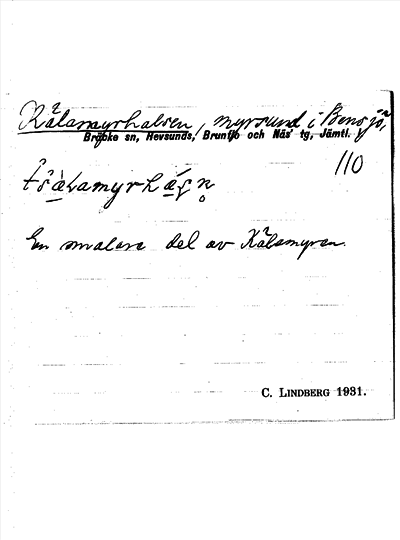 Kälamyrhalsen, myrsund i Bensjö,
Bräcke sn, Hevsunds, Brunflo och Näs' tg, Jämtl. l.
110
En smalare del av Kälamyran.
C. LINDBERG 1931.